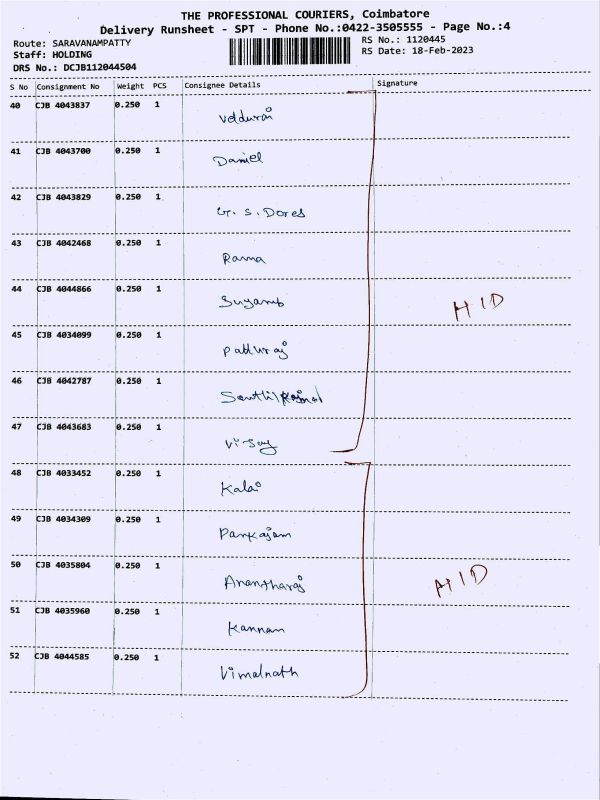 THE PROFESSIONAL COURIERS, Coimbatore
Delivery Runsheet - SPT - Phone No.:0422-3505555 - Page No.:4
Route: SARAVANAMPATTY
Staff: HOLDING
DRS No.: DCJB112044504
RS No.: 1120445
RS Date: 18-Feb-2023
S No Consignment No Weight PCS Consignee Details Signature
40 CJB 4043837 0.250 1
41 CJB 4043700 0.250 1 Daniel
42 CJB 4043829 0.250 1 G. S. Dores
43 CJB 4042468 0.250 1 Rama
44 CJB 4044866 0.250 1 Suyamb
H I D
45 CJB 4034099 0.250 1
46 CJB 4042787 0.250 1
47 CJB 4043683 0.250 1 Vijay
48 CJB 4033452 0.250 1 Kalai
49 CJB 4034309 0.250 1 Pankajam
50 CJB 4035804 0.250 1 Anantharaj
H I D
51 CJB 4035960 0.250 1 Kannan
52 CJB 4044585 0.250 1 Vimalnath